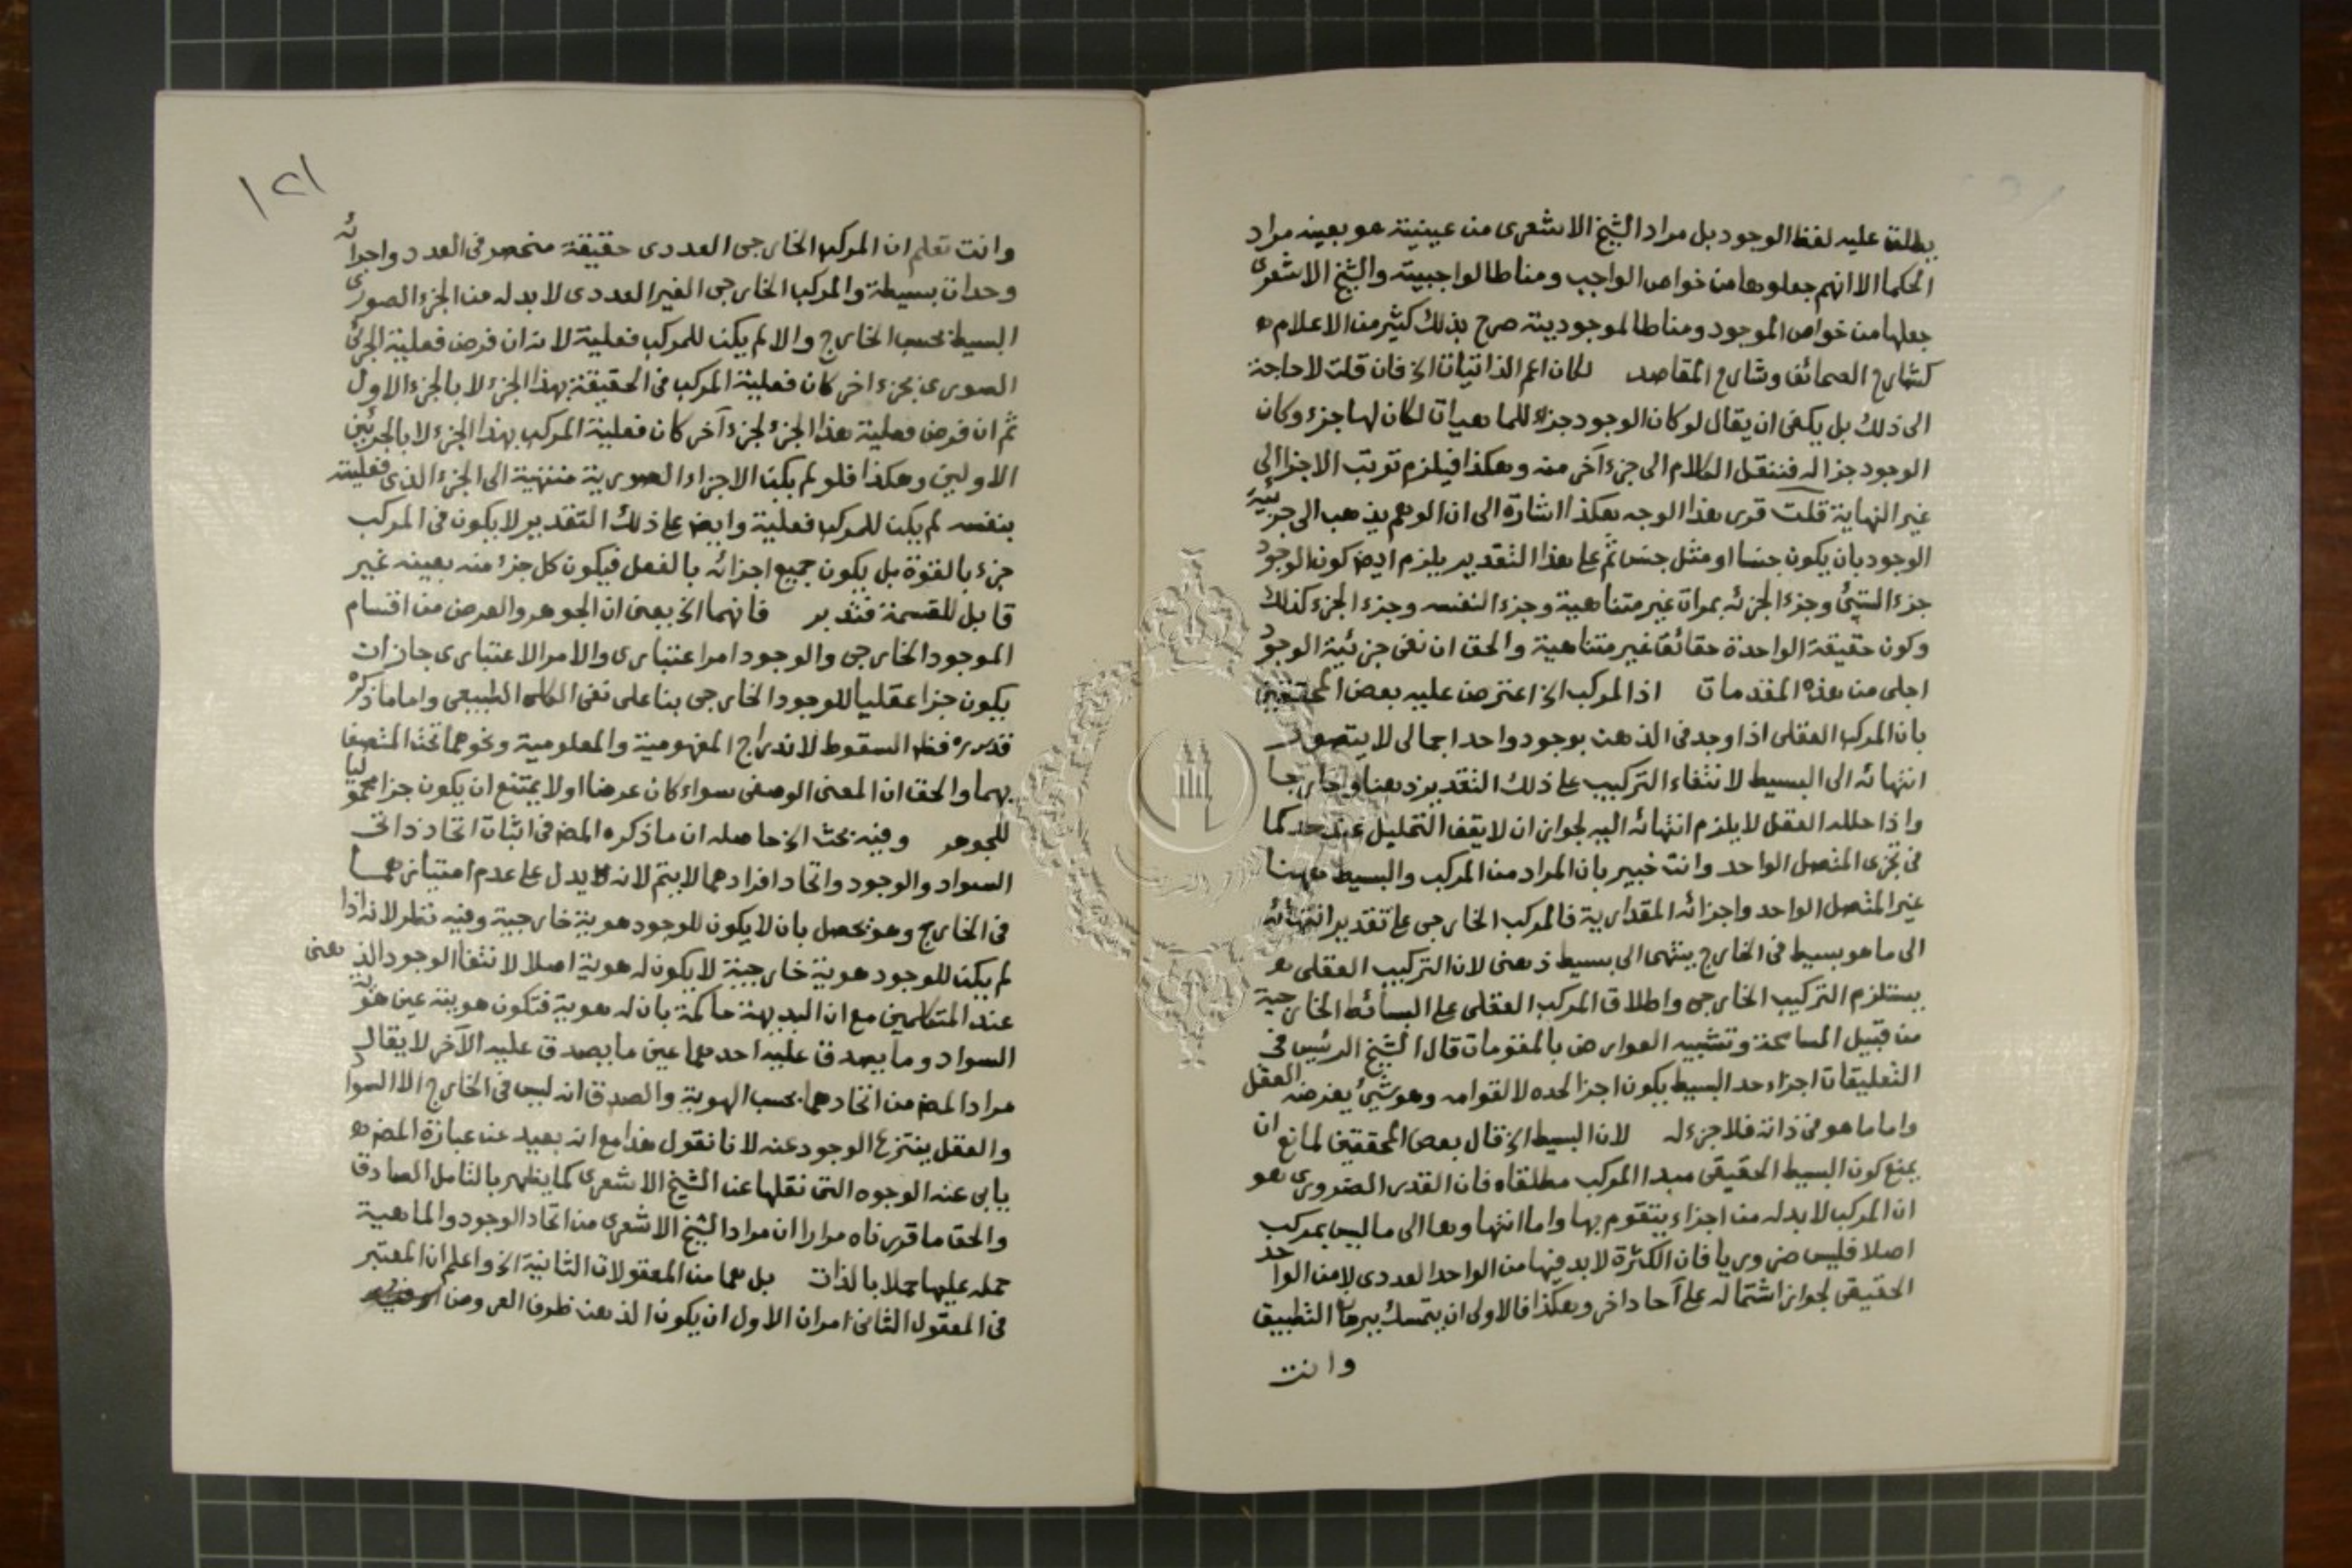 يطلق عليه لفظ الوجود بل مراد الشيخ الاشعرى من عينية هو بعينه مراد
الحكما الا انهم جعلوها من خواص الواجب ومناطا لواجبيته والشيخ الاشعرى
جعلها من خواص الموجود ومناطا لموجوديته صرح بذلك كثير من الاعلام
كشارح الصحائف وشارح المقاصد لكان اعم الذاتيات الخ فان قلت لا حاجة
الى ذلك بل يكفى ان يقال لو كان الوجود جزء للماهيات لكان لها جزء وكان
الوجود جزا له فننقل الكلام الى جزء آخر منه وهكذا فيلزم ترتب الاجزا الى
غير النهاية قلت قرر هذا الوجه هكذا اشارة الى ان الوهم يذهب الى جزئية
الوجود بان يكون جنسا او مثل جنس ثم على هذا التقدير يلزم ايض كون الوجود
جزء الشئ وجزء الجزئه بمرات غير متناهية وجزء لنفسه وجزء الجزء كذلك
وكون حقيقة الواحدة حقائق غير متناهية والحق ان نفى جزئية الوجود
اجلى من هذه المقدمات اذ المركب الخ اعترض عليه بعض المحققين
بان المركب العقلى اذا وجد فى الذهن بوجود واحد اجمالى لا يتصور
انتهائه الى البسيط لانتفاء التركيب على ذلك التقدير ذهنا وخارجا
واذا حلله العقل لا يلزم انتهائه اليه لجواز ان لا يقف التحليل عند حد كما
فى تجزى المتصل الواحد وانت خبير بان المراد من المركب والبسيط ههنا
غير المتصل الواحد واجزائه المقدارية فالمركب الخارجى على تقدير انتهائه
الى ما هو بسيط فى الخارج ينتهى الى بسيط ذهنى لان التركيب العقلى
يستلزم التركيب الخارجى واطلاق المركب العقلى على البسائط الخارجية
من قبيل المسامحة وتشبيه العوارض بالمقومات قال الشيخ الرئيس فى
التعليقات اجزاء حد البسيط يكون اجزا لحده لا لقوامه وهو شئ يفرضه العقل
واما ما هو فى ذاته فلا جزء له لان البسيط الخ قال بعض المحققين لمانع ان
يمنع كون البسيط الحقيقى مبدا المركب مطلقا فان القدر الضرورى هو
ان المركب لا بد له من اجزاء يتقوم بها واما انتهاؤها الى ما ليس بمركب
اصلا فليس ضروريا فان الكثرة لا بد فيها من الواحد العددى لا من الواحد
الحقيقى لجواز اشتماله على آحاد اخر وهكذا فالاولى ان يتمسك ببرهان التطبيق
وانت
١٢١
وانت تعلم ان المركب الخارجى العددى حقيقة منحصر فى العدد واجزائه
وحدات بسيطة والمركب الخارجى الغير العددى لا بد له من الجزء الصورى
البسيط بحسب الخارج والا لم يكن للمركب فعلية لانه ان فرض فعلية الجزئ
الصورى بجزء اخر كان فعلية المركب فى الحقيقة بهذا الجزء لا بالجزء الاول
ثم ان فرض فعلية هذا الجزء لجزء آخر كان فعلية المركب بهذا الجزء لا بالجزئين
الاولين وهكذا فلو لم يكن الاجزاء الصورية منتهية الى الجزء الذى فعليته
بنفسه لم يكن للمركب فعلية وايض على ذلك التقدير لا يكون فى المركب
جزء بالقوة بل يكون جميع اجزائه بالفعل فيكون كل جزء منه بعينه غير
قابل للقسمة فتدبر فانهما الخ يعنى ان الجوهر والعرض من اقسام
الموجود الخارجى والوجود امر اعتبارى والامر الاعتبارى جاز ان
يكون جزا عقليا للوجود الخارجى بنا على نفى الكلى الطبيعى واما ما ذكره
قدس سره فظ السقوط لاندراج المفهومية والمعلومية ونحوهما تحت المتصف
بهما والحق ان المعنى الوصفى سواء كان عرضا او لا يمتنع ان يكون جزا محموليا
للجوهر وفيه بحث الخ حاصله ان ما ذكره المص فى اثبات اتحاد ذاتى
السواد والوجود واتحاد افرادهما لا يتم لانه لا يدل على عدم امتيازهما
فى الخارج وهو يحصل بان لا يكون للوجود هوية خارجية وفيه نظر لانه اذا
لم يكن للوجود هوية خارجية لا يكون له هوية اصلا لانتفا الوجود الذهنى
عند المتكلمين مع ان البديهة حاكمة بان له هوية فتكون هويته عين هوية
السواد وما يصدق عليه احدهما عين ما يصدق عليه الآخر لا يقال
مراد المص من اتحادهما بحسب الهوية والصدق انه ليس فى الخارج الا السواد
والعقل ينتزع الوجود عنه لانا نقول هذا مع انه بعيد عن عبارة المص
يابى عنه الوجوه التى نقلها عن الشيخ الاشعرى كما يظهر بالتامل الصادق
والحق ما قررناه مرارا ان مراد الشيخ الاشعرى من اتحاد الوجود والماهية
حمله عليها حملا بالذات بل هما من المعقولات الثانية الخ واعلم ان المعتبر
فى المعقول الثانى امران الاول ان يكون الذهن ظرف العروض